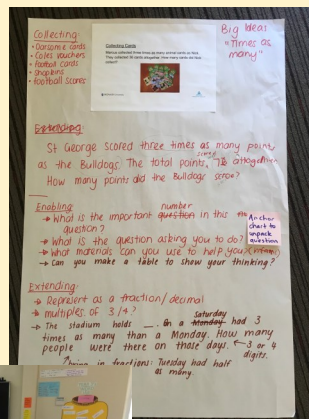 Collecting:
• Darsome cards
• Coles vouchers
• football cards
• shopkins
• football scores
Collecting Cards
Marcus collected three times as many animal cards as Nick.
They collected 36 cards altogether. How many cards did Nick
collect?
Big Idea:
"Times as
many"
St George scored three times as many points
as the Bulldogs. The total points, scored 72 altogether.
How many points did the Bulldogs score?
Enabling
→ What is the important question number in this the
question?
→ What is the question asking you to do?
→ What materials can you use to help you?
→ Can you make a table to show your thinking?
Anchor
chart to
unpack
question
Extending:
→ Represent as a fraction/decimal
→ multiples of 3/4?
→ The stadium holds __. On a Monday Saturday had 3
times as many than a Monday. How many
people were there on those days. ← 3 or 4
digits.
↑ bring in fractions: Tuesday had half
as many.